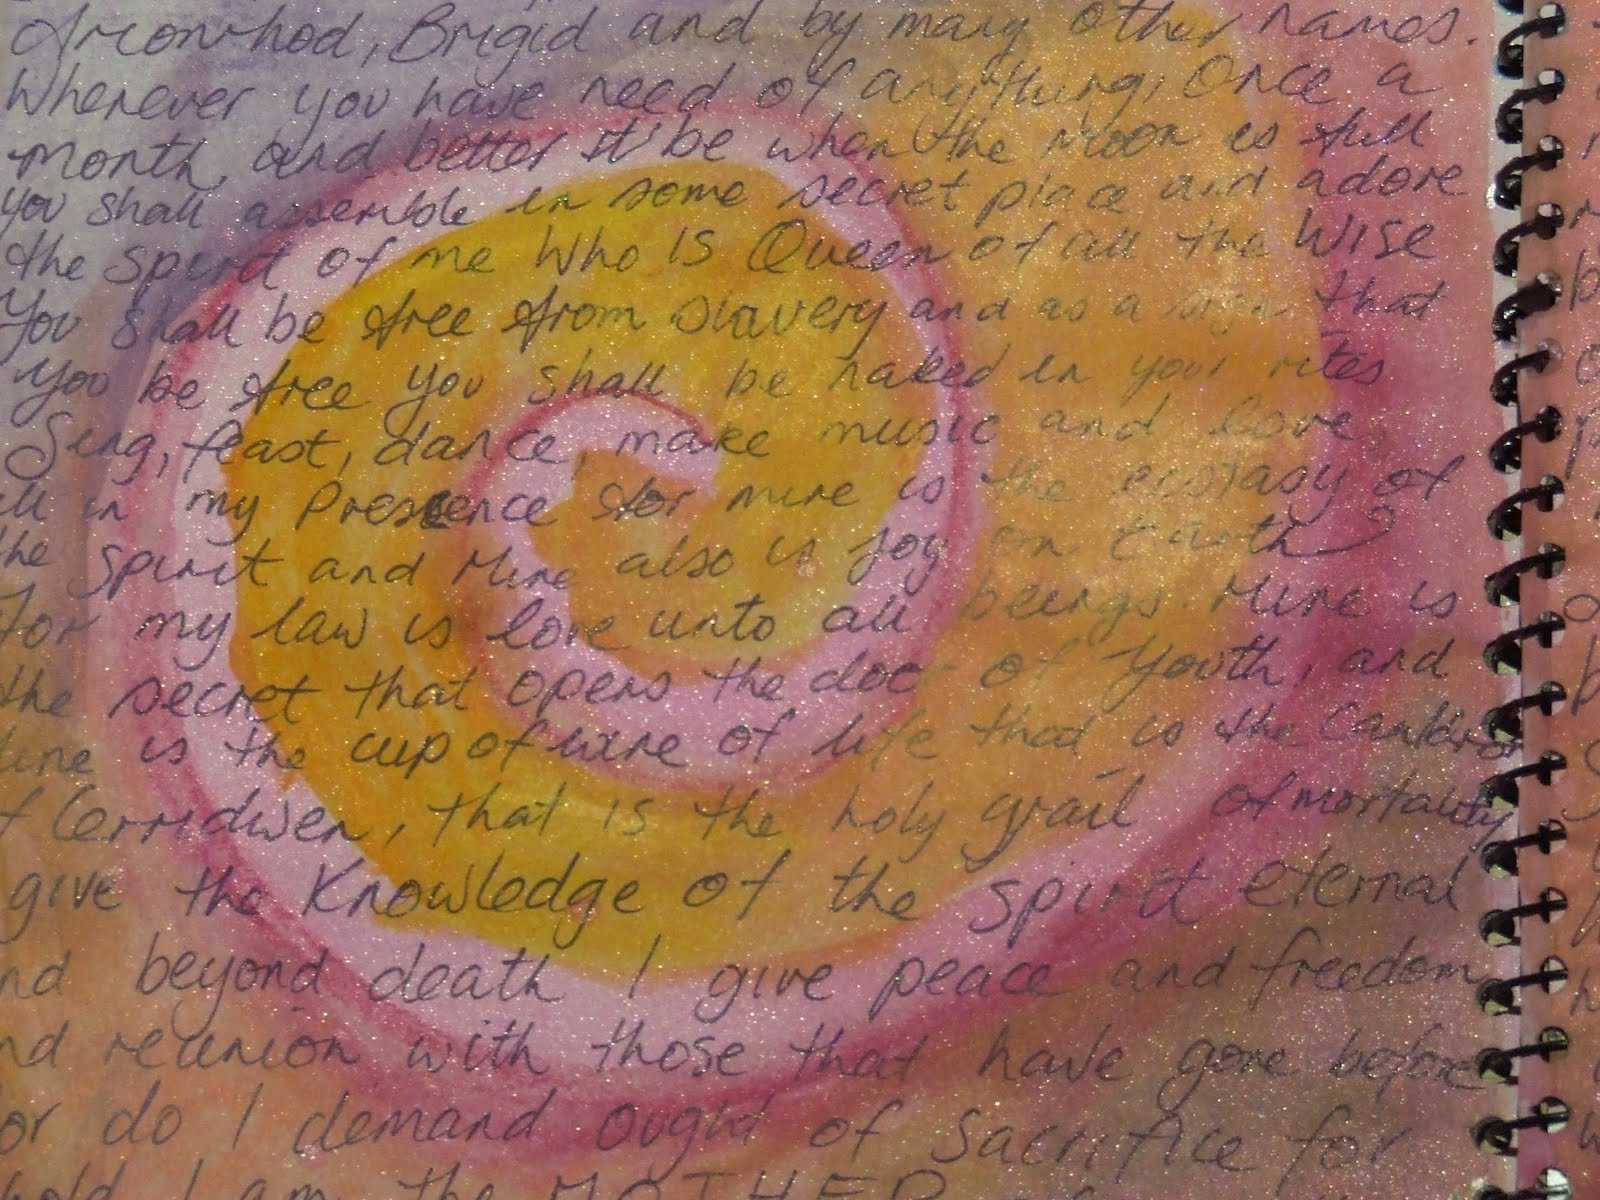 Arionrhod, Brigid and by many other names.
Wherever you have need of anything, Once a
month, and better it be when the Moon is full
you shall assemble in some secret place and adore
the spirit of me Who IS Queen of all the WISE
You shall be free from slavery and as a sign that
You be free you shall be naked in your rites
Sing, feast, dance, make music and love,
all in my Presence for mine is the ecstasy of
the spirit and Mine also is joy on Earth
For my law is love unto all beings. Mine is
the secret that opens the door of Youth, and
Mine is the cup of wine of life that is the Cauldron
of Cerridwen, that is the holy grail of mortality
give the Knowledge of the spirit eternal
and beyond death I give peace and freedom
and reunion with those that have gone before
Nor do I demand ought of Sacrifice for
behold I am the MOTHER